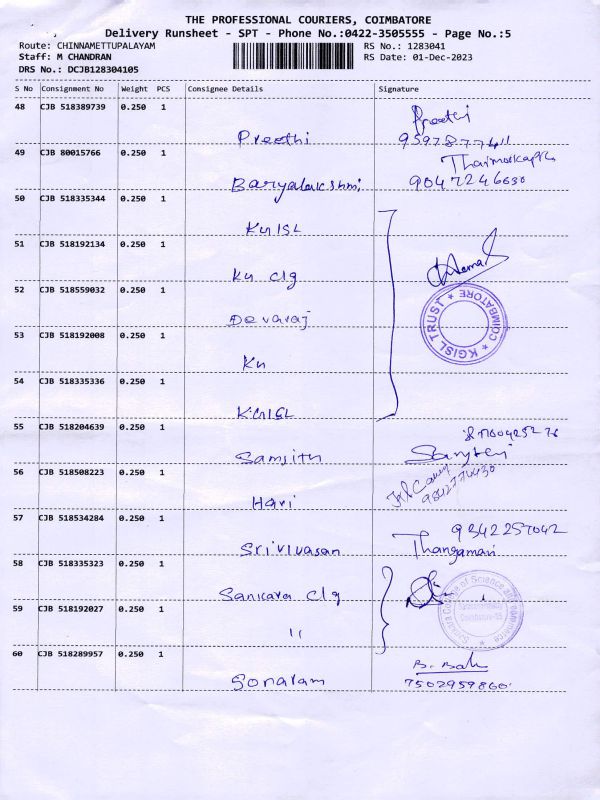 THE PROFESSIONAL COURIERS, COIMBATORE
Delivery Runsheet - SPT - Phone No.:0422-3505555 - Page No.:5
Route: CHINNAMETTUPALAYAM RS No.: 1283041
Staff: M CHANDRAN RS Date: 01-Dec-2023
DRS No.: DCJB128304105
S No Consignment No Weight PCS Consignee Details Signature
48 CJB 518389739 0.250 1
Preethi
Preethi 9597877411
49 CJB 80015766 0.250 1
9047246630
50 CJB 518335344 0.250 1
KGISL
51 CJB 518192134 0.250 1
KG clg
52 CJB 518559032 0.250 1
Devaraj
KGISL TRUST * COIMBATORE *
53 CJB 518192008 0.250 1
KG
54 CJB 518335336 0.250 1
KGISL
55 CJB 518204639 0.250 1
Samsith
56 CJB 518508223 0.250 1
Hari
9842776430
57 CJB 518534284 0.250 1
9342257042
Srivivasan Thangamari
58 CJB 518335323 0.250 1
Sankara Clg
Sankara College of Science and Commerce
Coimbatore-35
59 CJB 518192027 0.250 1
"
60 CJB 518289957 0.250 1
B. Bala
Sonaram 7502959860